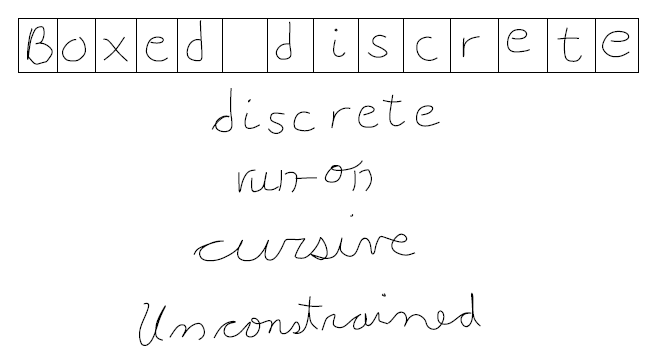 Boxed discrete
discrete
run-on
cursive
Unconstrained